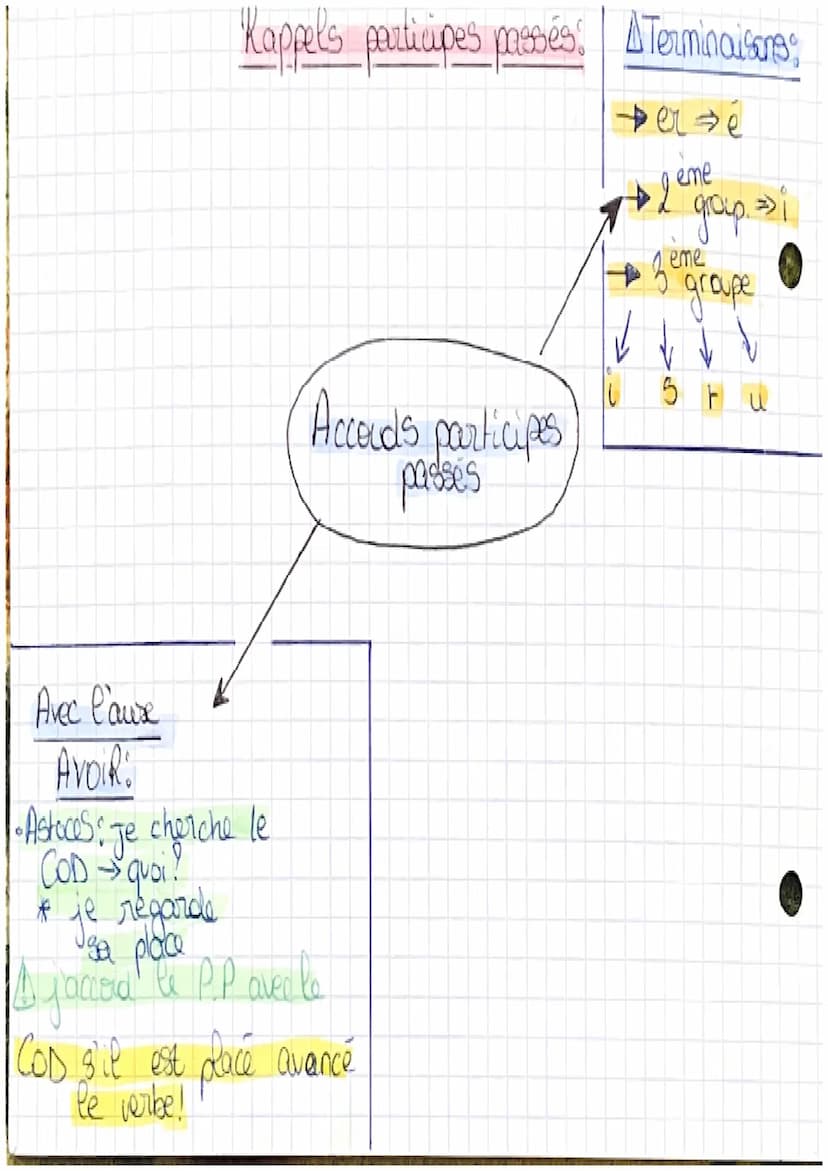 Rappels participes passés:
⚠Terminaisons:
→ er ⇒ é
→ 2ème group. ⇒ i
→ 3ème groupe
i s t u
Accords participes
passés
Avec l'aux
AVOIR:
•Astoces: je cherche le
COD → quoi?
* je regarde
sa place
⚠ j'accord le P.P avec le
COD s'il est placé avancé
le verbe!